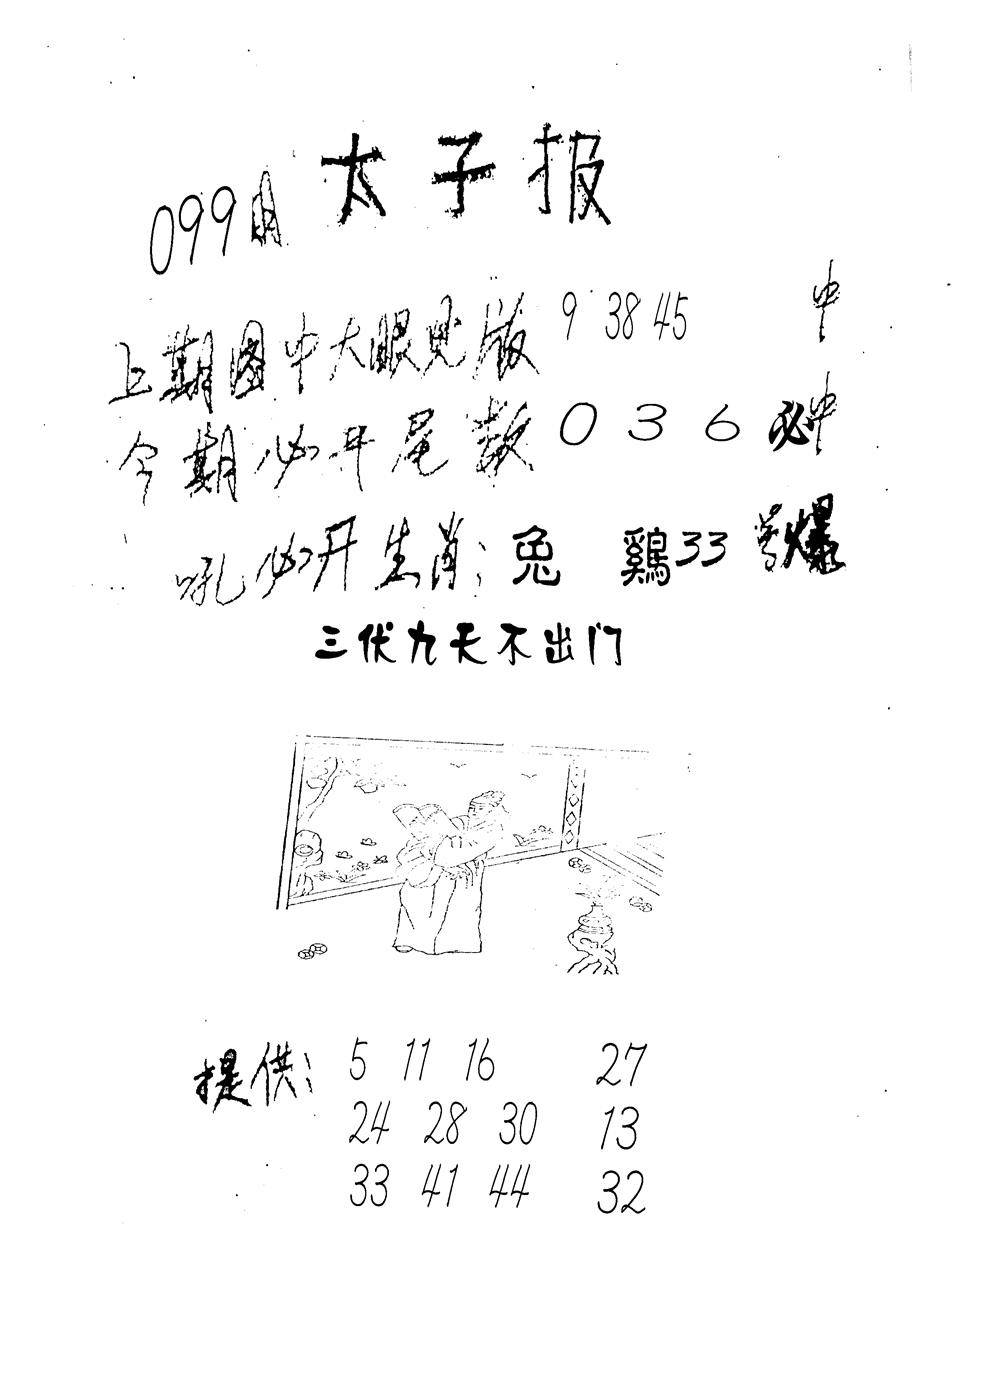 太子报
099期
上期图中大眼见版 9 38 45 中
今期必开尾数 0 3 6 必中
吼必开生肖: 兔 鷄 33 号爆
三伏九天不出门
提供: 5 11 16 27
24 28 30 13
33 41 44 32